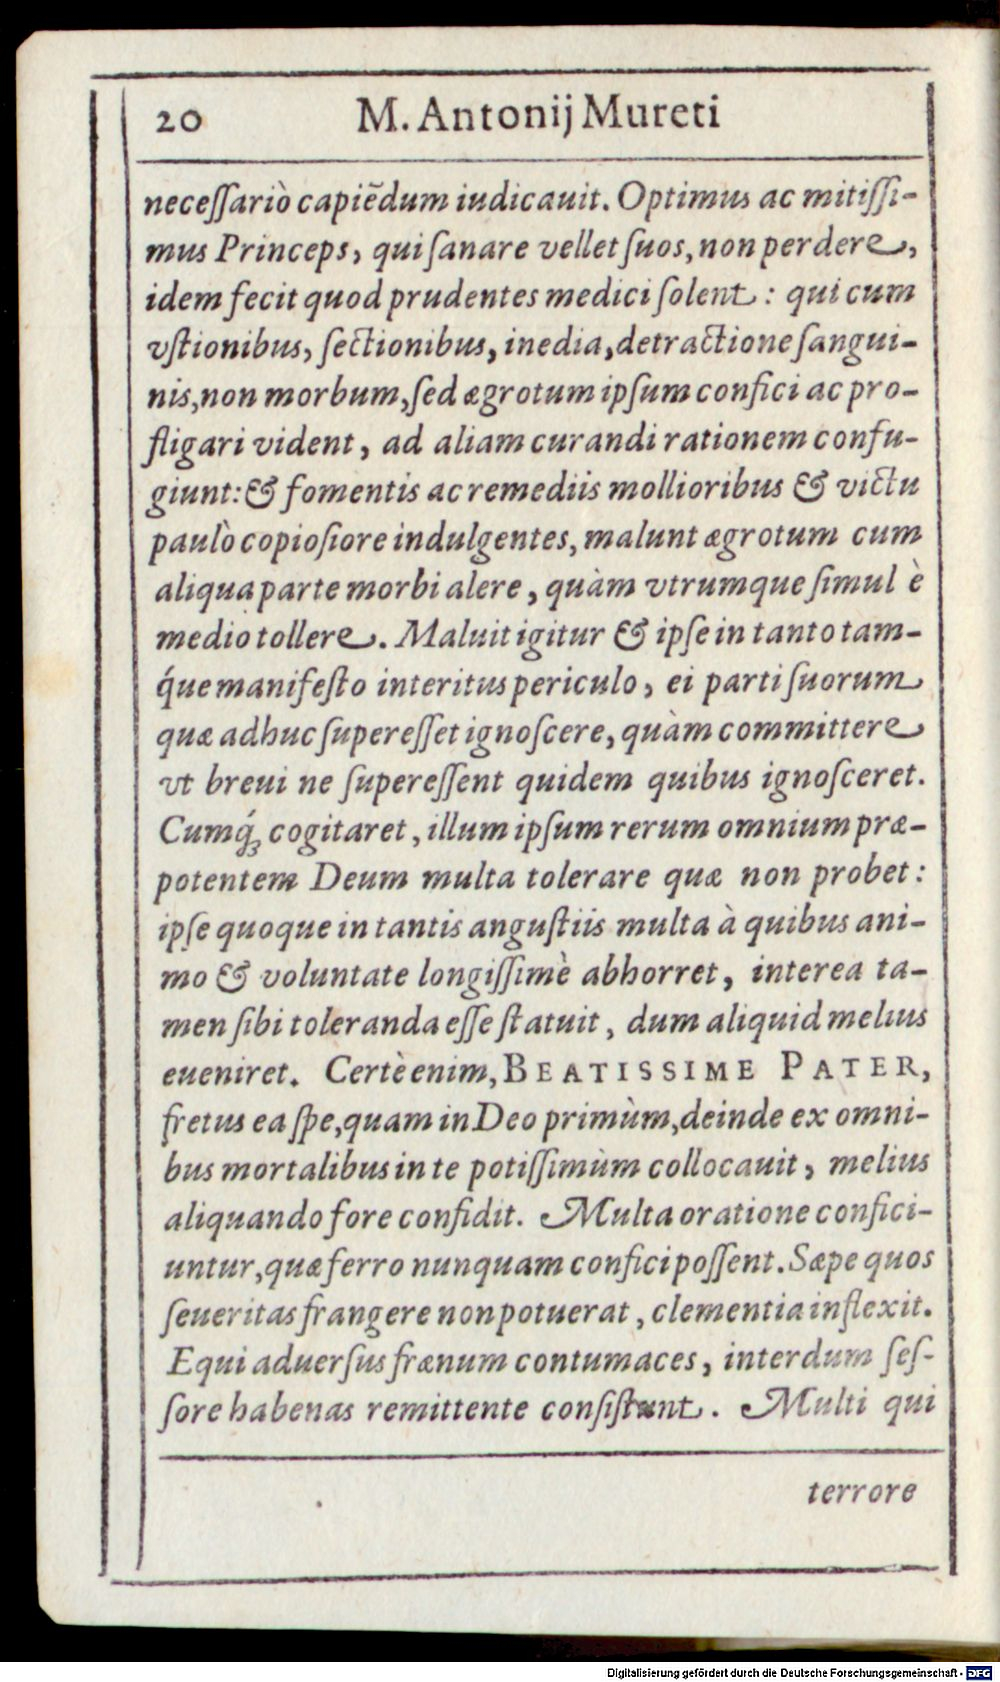 20 M. Antonij Mureti
neceſſariò capiẽdum iudicauit. Optimus ac mitiſſi-
mus Princeps, qui ſanare vellet ſuos, non perdere,
idem fecit quod prudentes medici ſolent: qui cum
vſtionibus, ſectionibus, inedia, detractione ſangui-
nis, non morbum, ſed ægrotum ipſum confici ac pro-
fligari vident, ad aliam curandi rationem confu-
giunt: & fomentis ac remediis mollioribus & victu
paulò copioſiore indulgentes, malunt ægrotum cum
aliqua parte morbi alere, quàm vtrumque ſimul è
medio tollere. Maluit igitur & ipſe in tanto tam-
q́ue manifeſto interitus periculo, ei parti ſuorum
quæ adhuc ſupereſſet ignoſcere, quàm committere
vt breui ne ſupereſſent quidem quibus ignoſceret.
Cumq́ꝫ cogitaret, illum ipſum rerum omnium præ-
potentem Deum multa tolerare quæ non probet:
ipſe quoque in tantis anguſtiis multa à quibus ani-
mo & voluntate longiſſimè abhorret, interea ta-
men ſibi toleranda eſſe ſtatuit, dum aliquid melius
eueniret. Certè enim, BEATISSIME PATER,
fretus ea ſpe, quam in Deo primùm, deinde ex omni-
bus mortalibus in te potiſſimùm collocauit, melius
aliquando fore confidit. Multa oratione confici-
untur, quæ ferro nunquam confici poſſent. Sæpe quos
ſeueritas frangere non potuerat, clementia inflexit.
Equi aduerſus frænum contumaces, interdum ſeſ-
ſore habenas remittente conſiſtunt. Multi qui
terrore
Digitalisierung gefördert durch die Deutsche Forschungsgemeinschaft - DFG